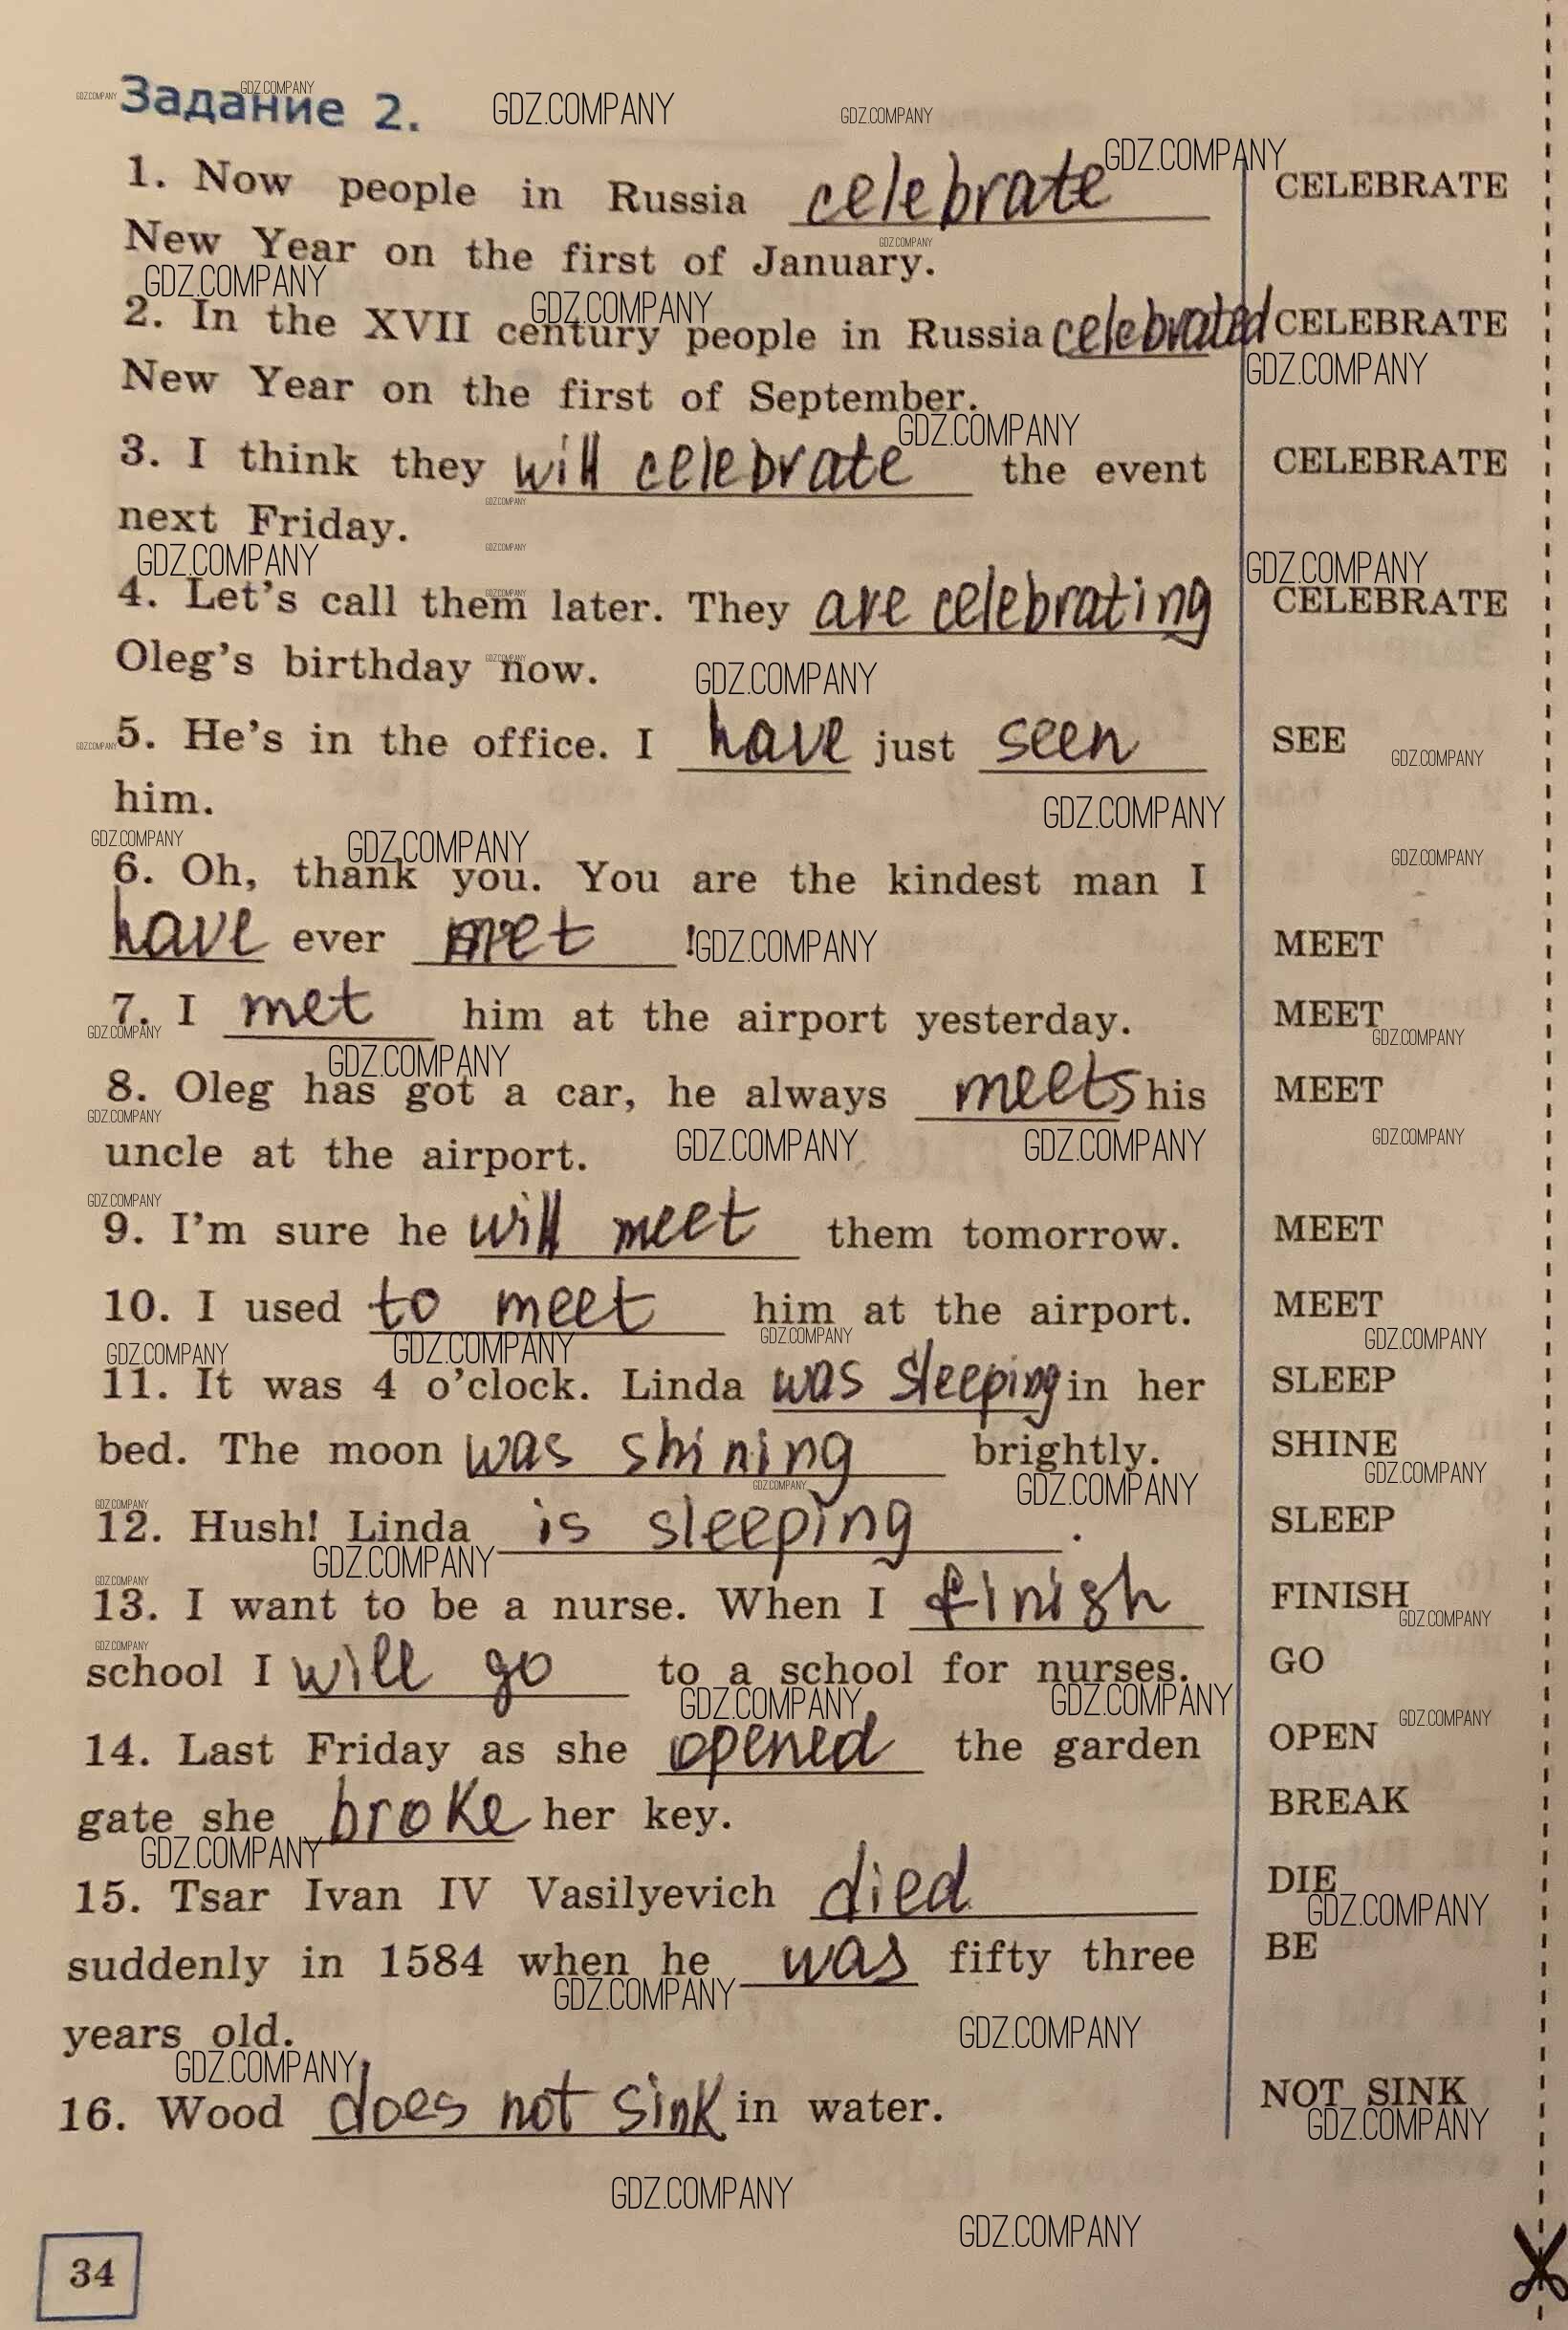 Задание 2.
1. Now people in Russia celebrate CELEBRATE
New Year on the first of January.
2. In the XVII century people in Russia celebrated CELEBRATE
New Year on the first of September.
3. I think they will celebrate the event CELEBRATE
next Friday.
4. Let's call them later. They are celebrating CELEBRATE
Oleg's birthday now.
5. He's in the office. I have just seen SEE
him.
6. Oh, thank you. You are the kindest man I
have ever met ! MEET
7. I met him at the airport yesterday. MEET
8. Oleg has got a car, he always meets his MEET
uncle at the airport.
9. I'm sure he will meet them tomorrow. MEET
10. I used to meet him at the airport. MEET
11. It was 4 o'clock. Linda was sleeping in her SLEEP
bed. The moon was shining brightly. SHINE
12. Hush! Linda is sleeping . SLEEP
13. I want to be a nurse. When I finish FINISH
school I will go to a school for nurses. GO
14. Last Friday as she opened the garden OPEN
gate she broke her key. BREAK
15. Tsar Ivan IV Vasilyevich died DIE
suddenly in 1584 when he was fifty three BE
years old.
16. Wood does not sink in water. NOT SINK
34
GDZ.COMPANY